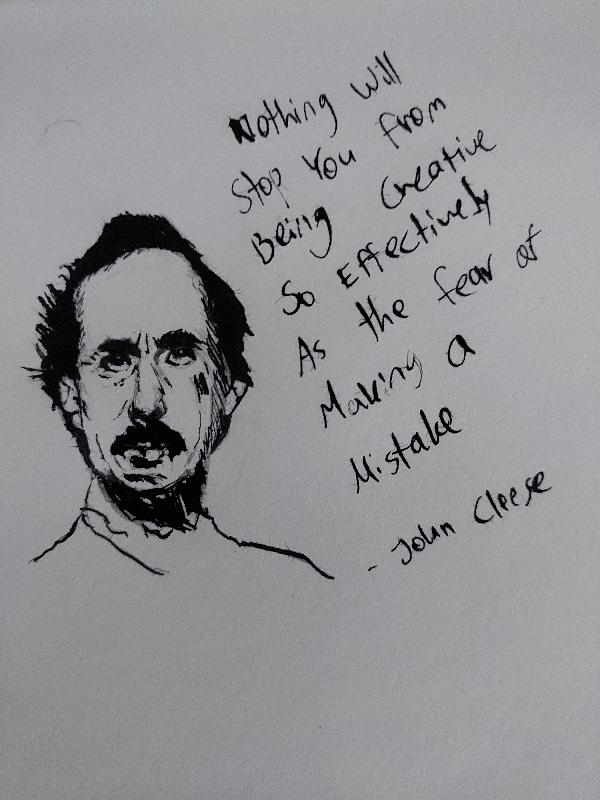 Nothing Will
Stop You From
Being Creative
So Effectively
As the fear of
Making a
Mistake
- John Cleese